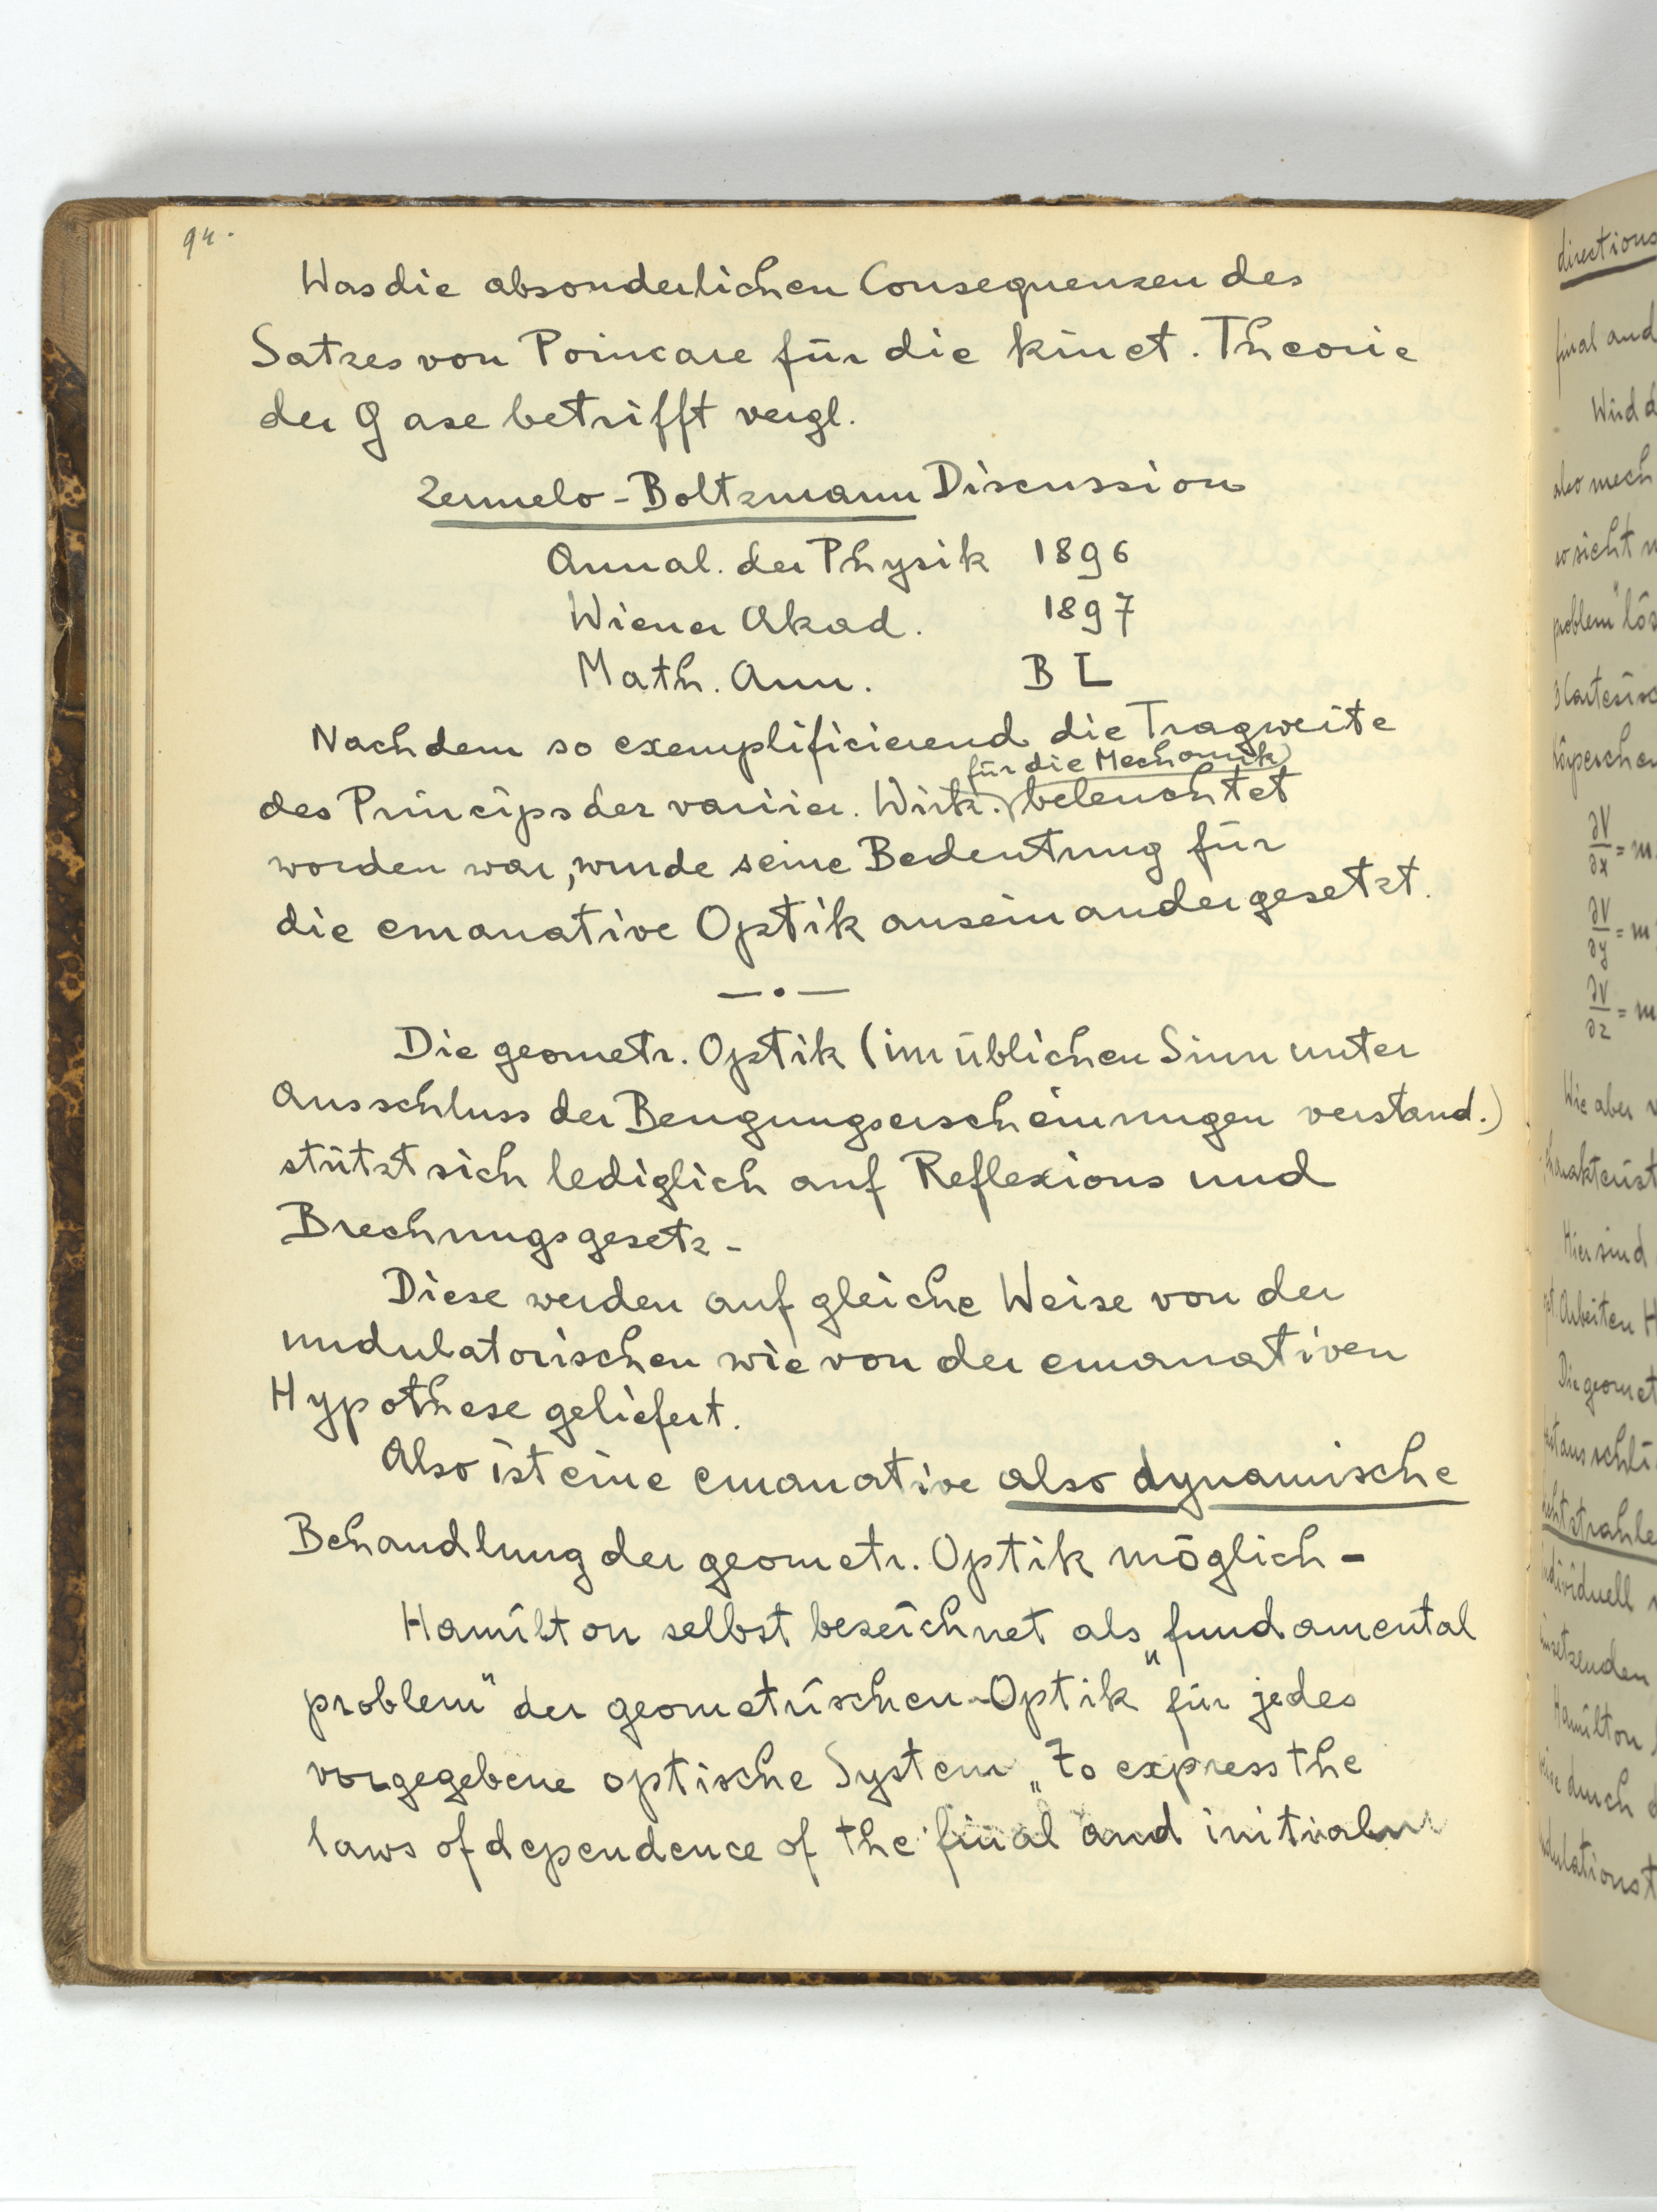 94.
Was die absonderlichen Consequenzen des
Satzes von Poincare für die kinet. Theorie
der Gase betrifft vergl.
Zermelo-Boltzmann Discussion
Annal. der Physik 1896
Wiener Akad. 1897
Math. Ann. B L
Nachdem so exemplificierend die Tragweite
für die Mechanik
des Princips der variier. Wirk. beleuchtet
worden war, wurde seine Bedeutung für
die emanative Optik auseinandergesetzt.
—•—
Die geometr. Optik (im üblichen Sinn unter
Ausschluss der Beugungserscheinungen verstand.)
stützt sich lediglich auf Reflexions und
Brechungsgesetz-
Diese werden auf gleiche Weise von der
undulatorischen wie von der emanativen
Hypothese geliefert.
Also ist eine emanative also dynamische
Behandlung der geometr. Optik möglich-
Hamilton selbst bezeichnet als „fundamental
problem" der geometrischen Optik für jedes
vorgegebene optische System „to express the
laws of dependence of the final and initial
directions
final and
Wird d
also mech
so sicht
problem" lös
3 Cartesisc
körperchen
∂V/∂x = m
∂V/∂y = m
∂V/∂z = m
Wie aber
charakterist
Hier sind
Arbeiten H
Die geomet
ausschli
strahle
individuell
setzenden
Hamilton
durch d
undulationst